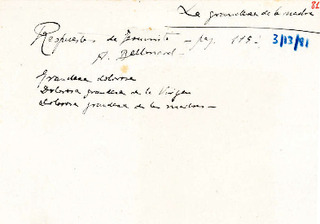 La grandeza de la madre
81
Respuestas de Jesucristo - pag. 115:
3/13/81
A.
Grandeza dolorosa
Dolorosa grandeza de la Virgen
Dolorosa grandeza de las madres -